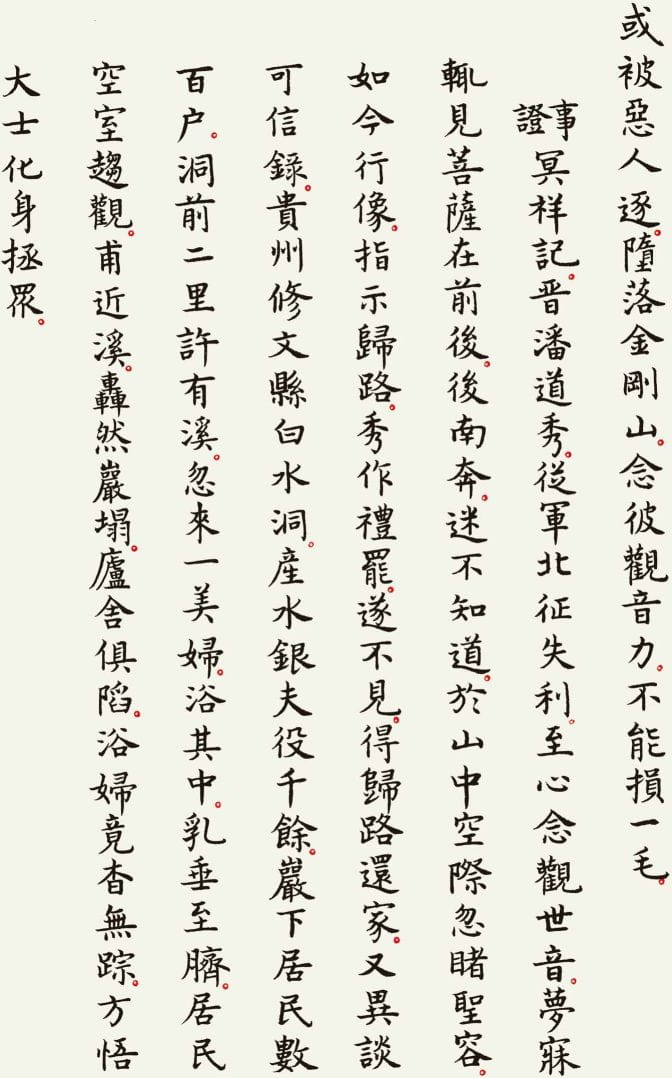 或被惡人逐。墮落金剛山。念彼觀音力。不能損一毛。
事證冥祥記。晋潘道秀。從軍北征失利。至心念觀世音。夢寐
輒見菩薩在前後。後南奔。迷不知道。於山中空際忽睹聖容。
如今行像。指示歸路。秀作禮罷。遂不見。得歸路還家。又異談
可信錄。貴州修文縣白水洞。産水銀夫役千餘。巖下居民數
百户。洞前二里許有溪。忽來一美婦。浴其中。乳垂至臍。居民
空室趨觀。甫近溪。轟然巖塌。廬舍俱陷。浴婦竟杳無踪。方悟
大士化身拯眾。